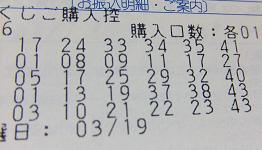 お振込明細・ご案内)
くじご購入控
6 購入口数:各01
17 24 33 34 35 41
01 08 09 11 17 27
05 17 25 29 32 40
01 13 19 37 38 43
03 10 21 22 23 43
日: 03/19